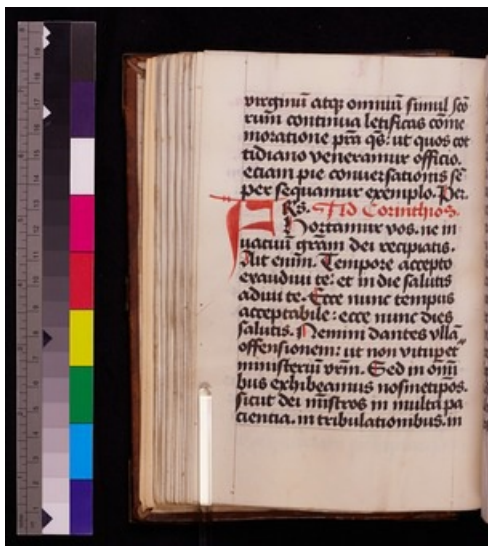 virginū atq̃ omniū simul scō
rum continua letificas cōme
moratione pr̄a qs̄: ut quos cot
tidiano veneramur officio.
etiam pie conuersationis sē
per sequamur exemplo. Per.
FRs. Ad Corinthios.
hortamur vos. ne in
uacuū gr̄am dei recipiatis.
Ait enim. Tempore accepto
exaudiui te: et in die salutis
adiui te. Ecce nunc tempus
acceptabile: ecce nunc dies
salutis. Nemini dantes vllā
offensionem: ut non vitupet̃
ministeriū vr̄m. Sed in om̄i
bus exhibeamus nosmetipos.
sicut dei mīstros in multa pa
cientia. in tribulationibus. in